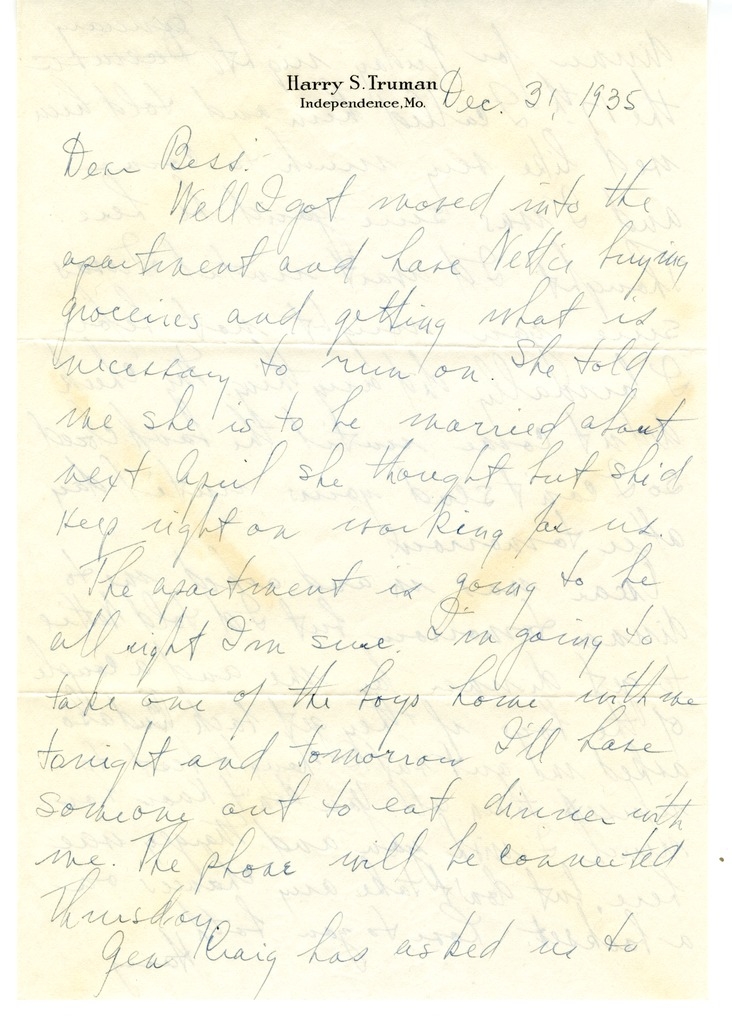 Harry S. Truman
Independence, Mo.
Dec. 31, 1935
Dear Bess:
Well I got moved into the
apartment and have Nettie buying
groceries and getting what is
necessary to run on. She told
me she is to be married about
next April she thought but she'd
keep right on working for us.
The apartment is going to be
all right I'm sure. I'm going to
take one of the boys home with me
tonight and tomorrow I'll have
someone out to eat dinner with
me. The phone will be connected
Thursday.
Gen Craig has asked us to